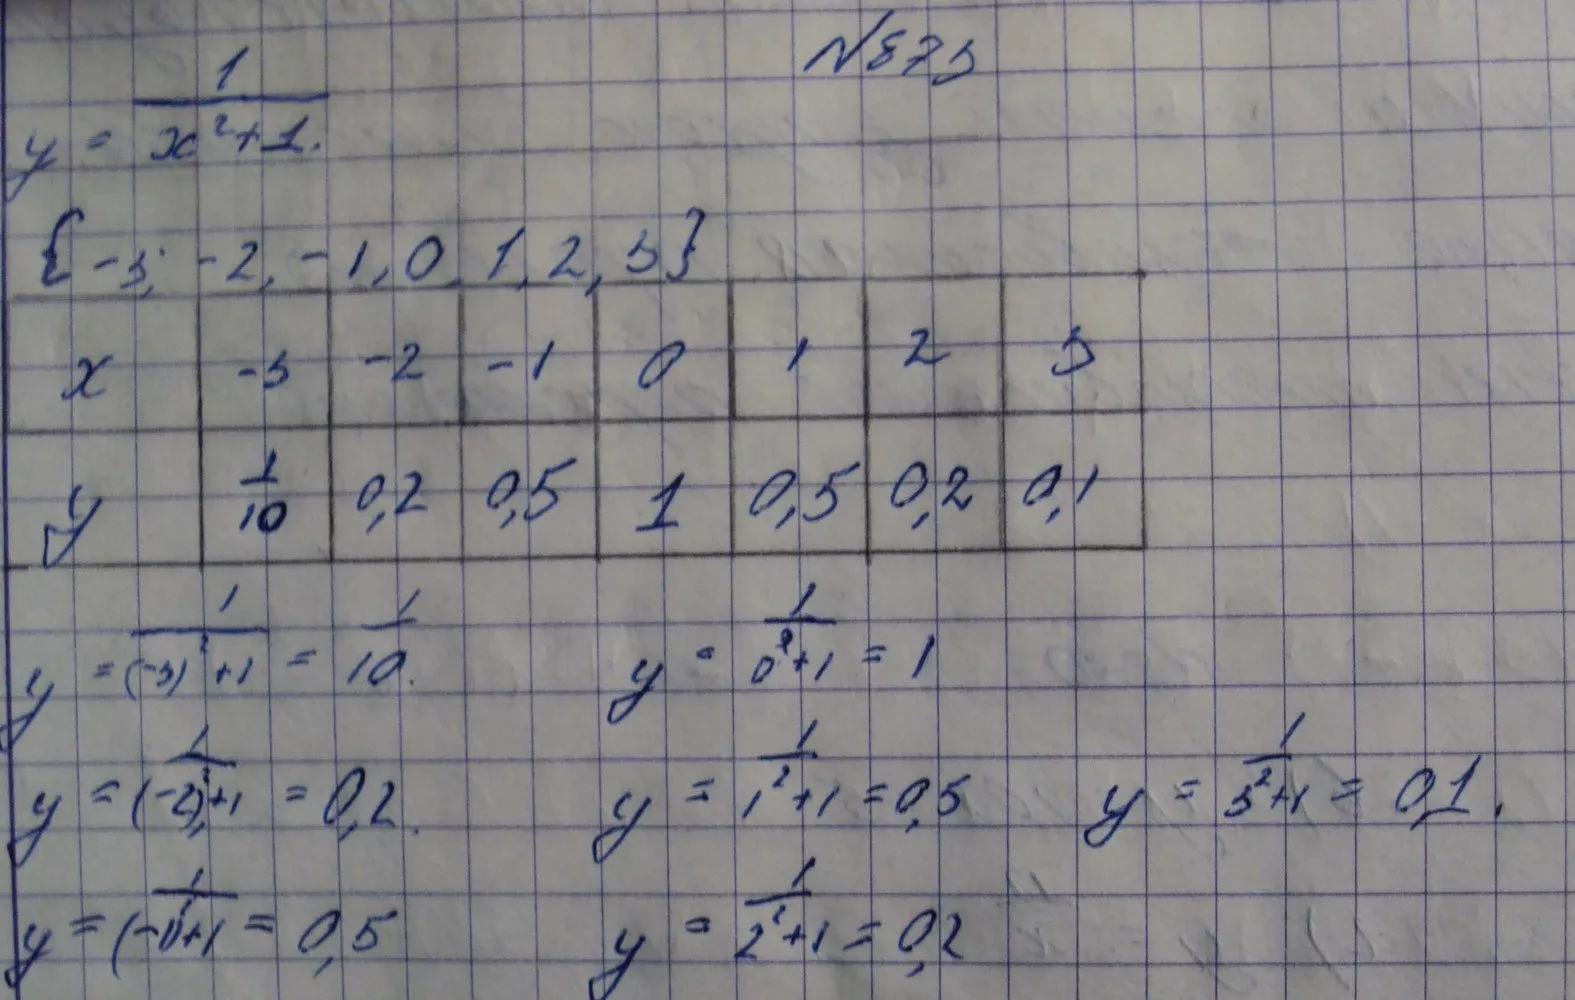 №573
y = 1/(x²+1).
{-3; -2, -1, 0, 1, 2, 3}
x -3 -2 -1 0 1 2 3
y 1/10 0,2 0,5 1 0,5 0,2 0,1
y = 1/((-3)²+1) = 1/10. y = 1/(0²+1) = 1
y = 1/((-2)²+1) = 0,2. y = 1/(1²+1) = 0,5 y = 1/(3²+1) = 0,1.
y = 1/((-1)²+1) = 0,5 y = 1/(2²+1) = 0,2